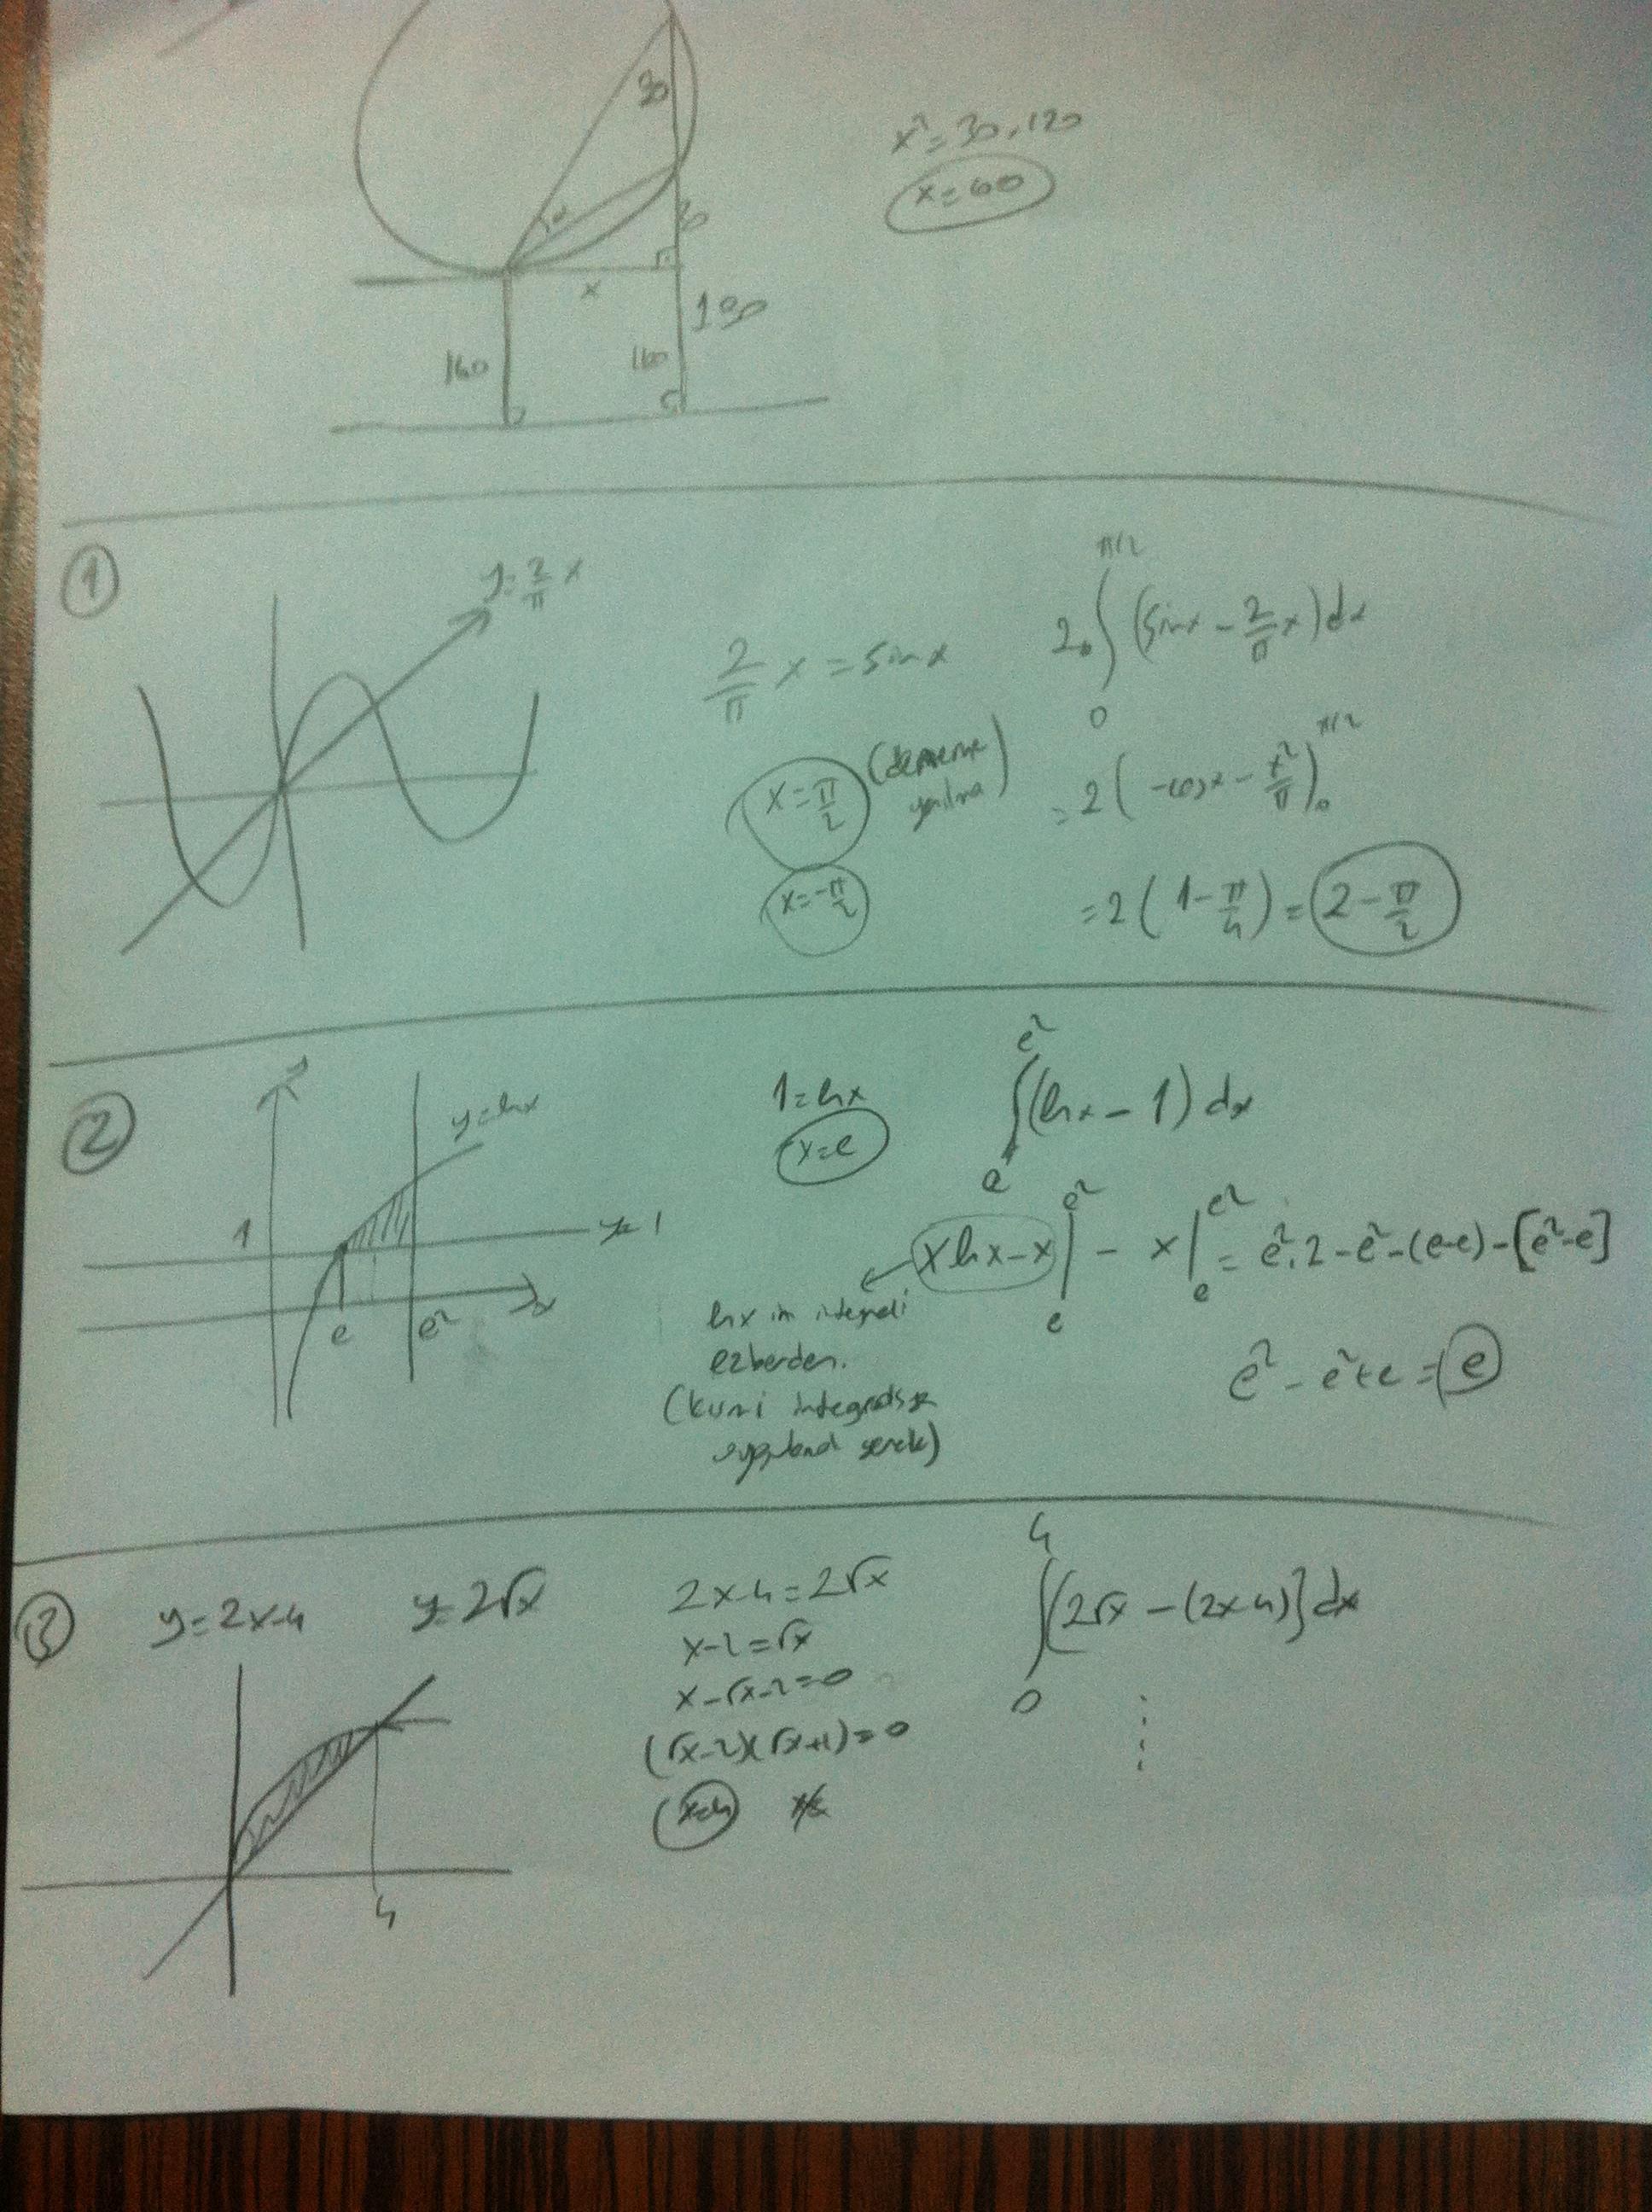 30
x² = 30.120
x = 60
α
30
x
190
160
160
1
y = 2/π x
2/π x = sinx
x = π/2
(deneme yanılma)
x = -π/2
2.∫₀^(π/2) (sinx - 2/π x) dx
= 2(-cosx - x²/π)₀^(π/2)
= 2(1 - π/4) = 2 - π/2
2
y = lnx
1
y = 1
e
e²
x
1 = lnx
x = e
∫ₑ^(e²) (lnx - 1) dx
xlnx - x |ₑ^(e²) - x |ₑ^(e²) = e².2 - e² - (e-e) - [e²-e]
lnx in integrali
ezberden.
(kısmi integrasyon
uygulamak gerek)
e² - e² + e = e
3
y = 2x-4
y = 2√x
4
2x-4 = 2√x
x-2 = √x
x-√x-2 = 0
(√x-2)(√x+1) = 0
x=4
∫₀⁴ [2√x - (2x-4)] dx